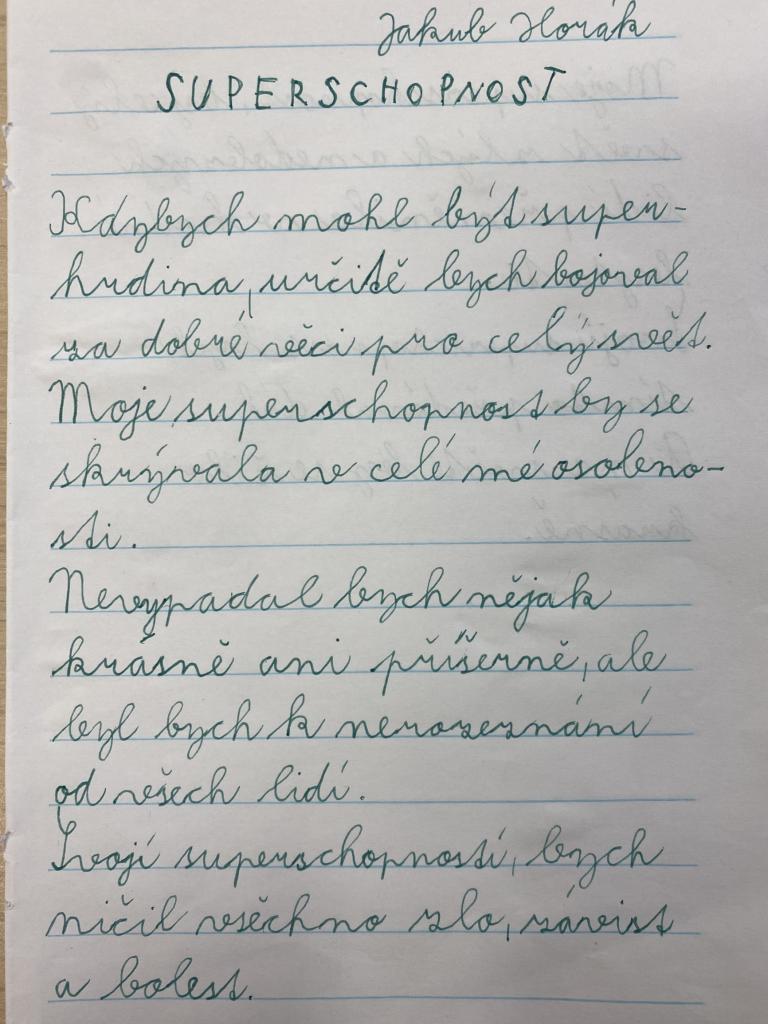 Jakub Horák
SUPERSCHOPNOST
Kdybych mohl být super-
hrdina, určitě bych bojoval
za dobré věci pro celý svět.
Moje superschopnost by se
skrývala v celé mé osobno-
sti.
Nevypadal bych nějak
krásně ani příšerně, ale
byl bych k nerozeznání
od všech lidí.
Svojí superschopností, bych
ničil všechno zlo, závist
a bolest.